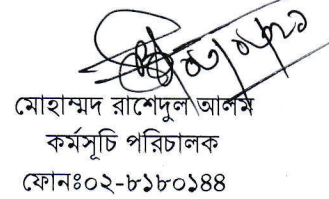 মোহাম্মদ রাশেদুল আলম
কর্মসূচি পরিচালক
ফোনঃ০২-৮১৮০১৪৪